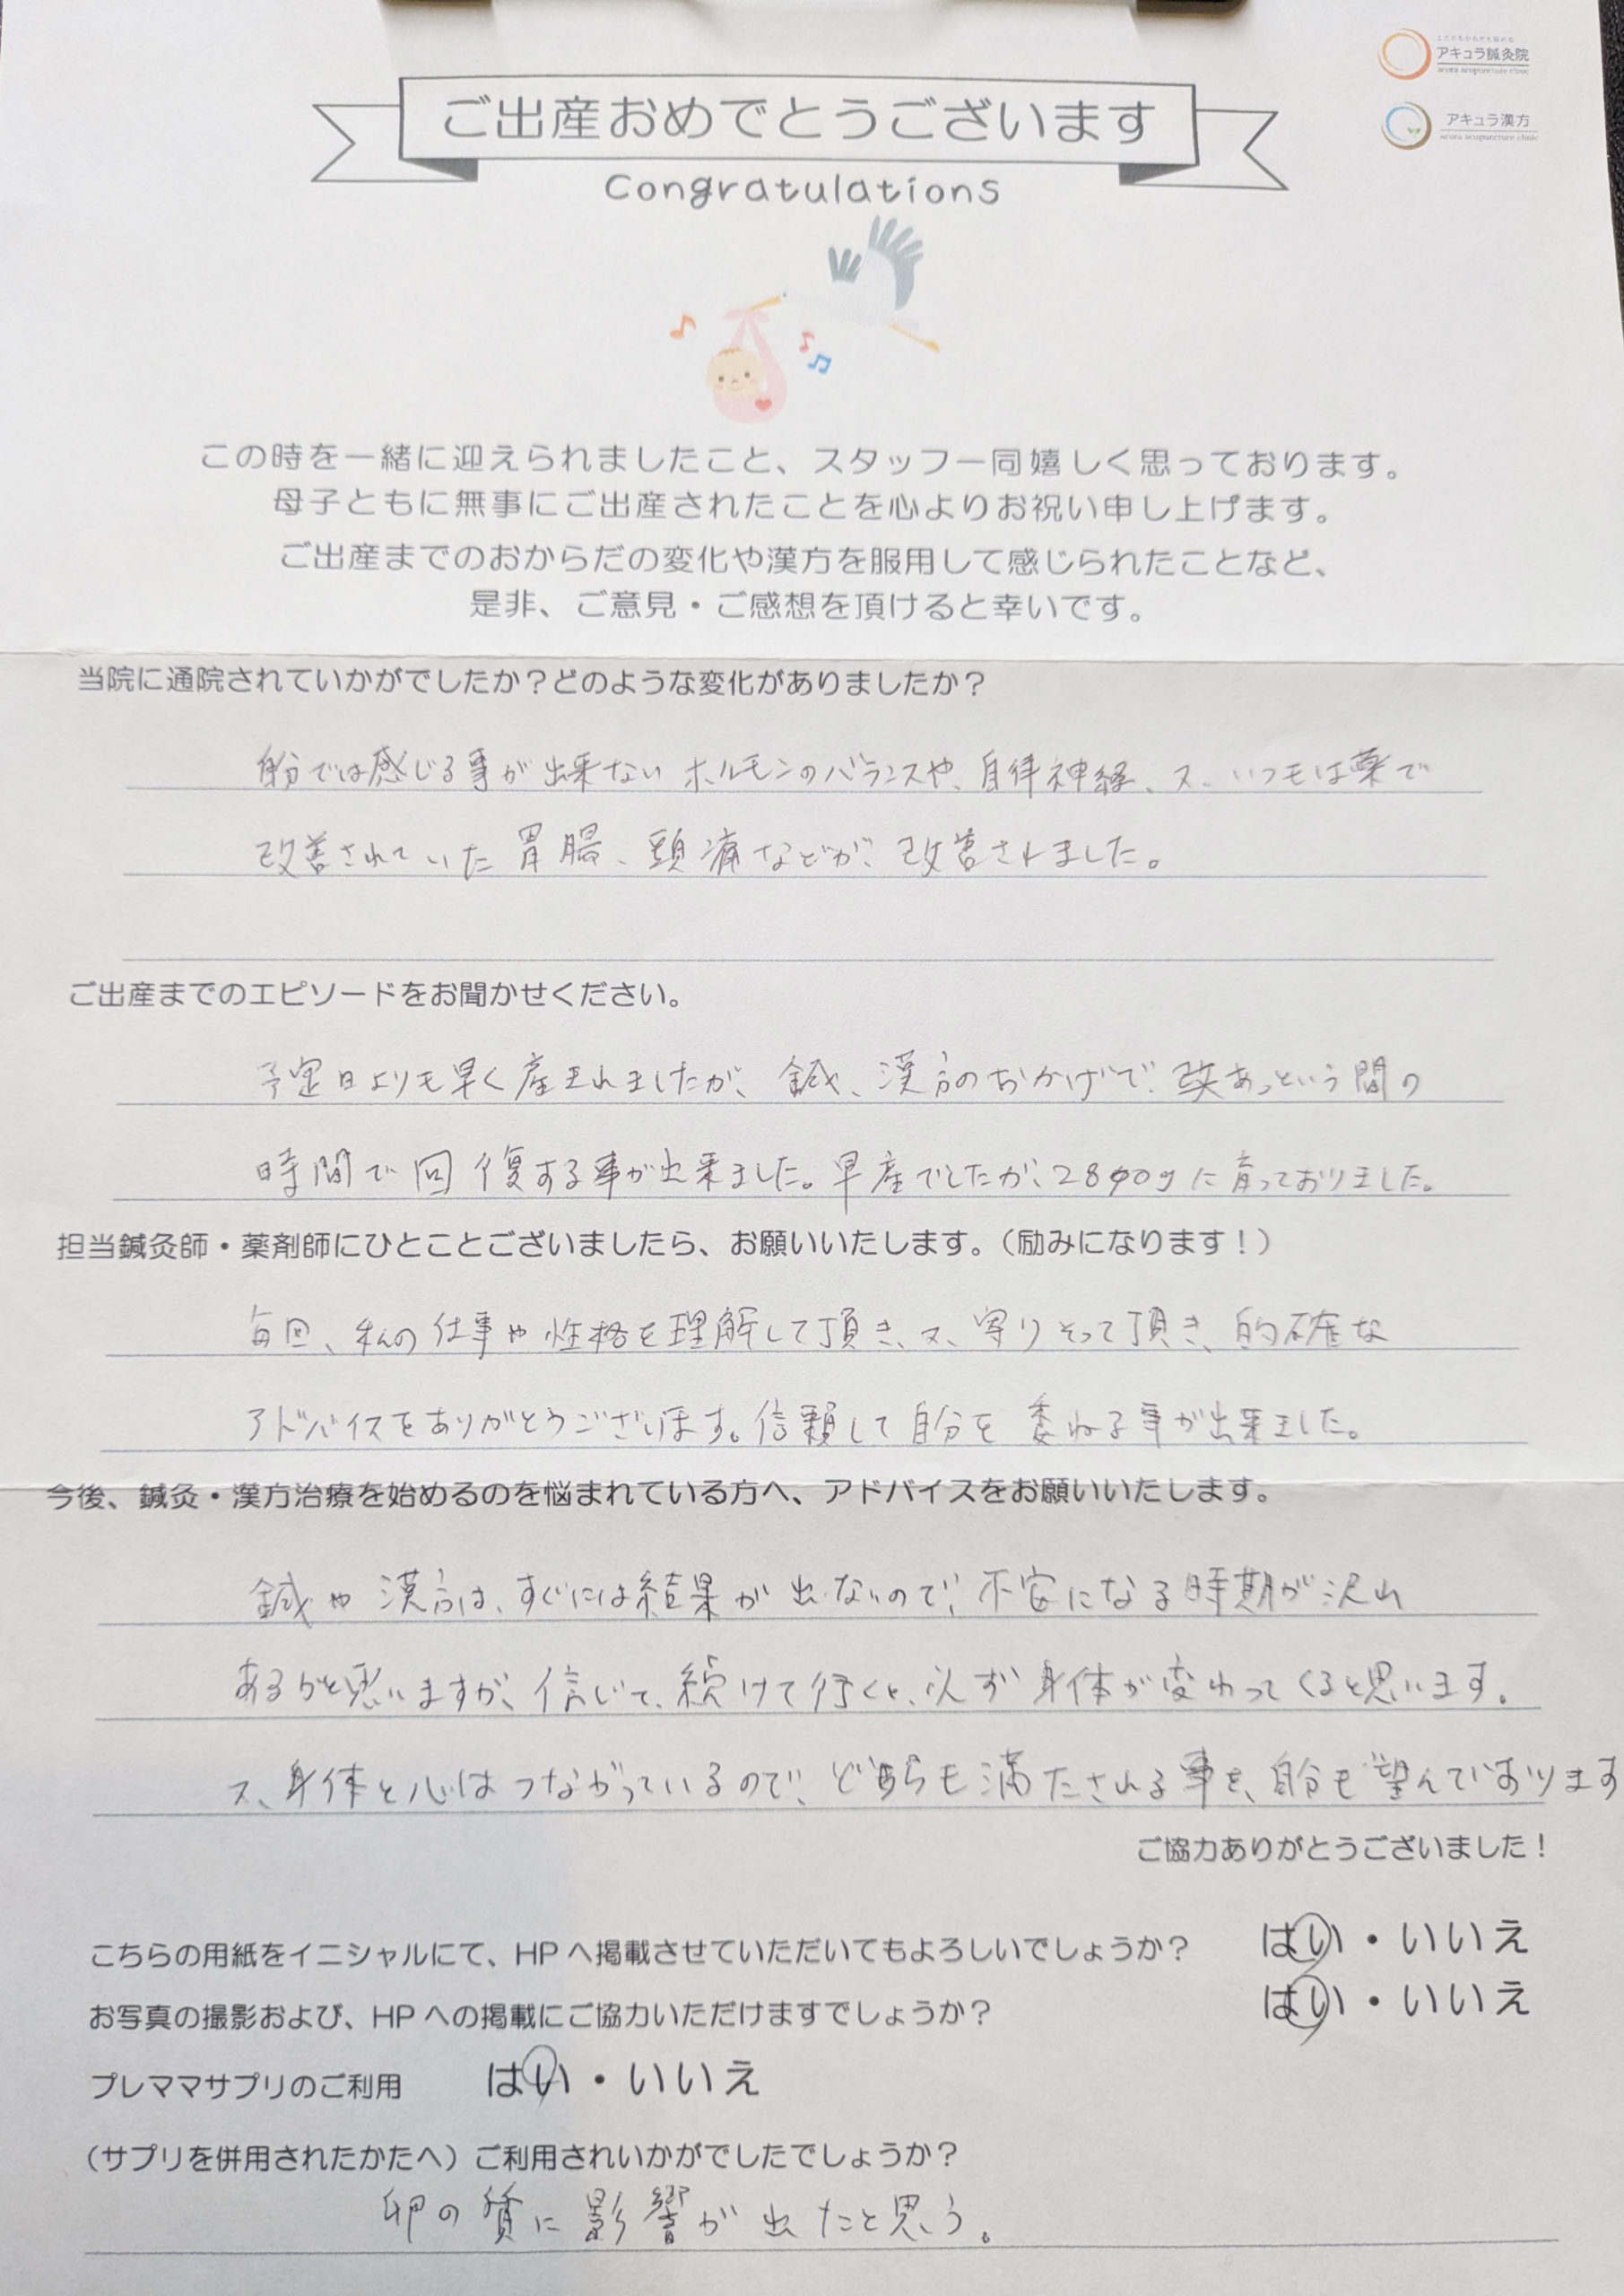 アキュラ鍼灸院
acura acupuncture clinic
アキュラ漢方
acura acupuncture clinic
ご出産おめでとうございます
Congratulations
この時を一緒に迎えられましたこと、スタッフ一同嬉しく思っております。
母子ともに無事にご出産されたことを心よりお祝い申し上げます。
ご出産までのおからだの変化や漢方を服用して感じられたことなど、
是非、ご意見・ご感想を頂けると幸いです。
当院に通院されていかがでしたか？どのような変化がありましたか？
自分では感じる事が出来ないホルモンのバランスや、自律神経、又、いつもは薬で
改善されていた胃腸、頭痛などが、改善されました。
ご出産までのエピソードをお聞かせください。
予定日よりも早く産まれましたが、鍼、漢方のおかげで、あっという間の
時間で回復する事が出来ました。早産でしたが、gに育っておりました。
担当鍼灸師・薬剤師にひとことございましたら、お願いいたします。（励みになります！）
毎回、私の仕事や性格を理解して頂き、又、寄りそって頂き、的確な
アドバイスをありがとうございます。信頼して自分を委ねる事が出来ました。
今後、鍼灸・漢方治療を始めるのを悩まれている方へ、アドバイスをお願いいたします。
鍼や漢方は、すぐには結果が出ないので、不安になる時期が沢山
あるかと思いますが、信じて、続けて行くと、必ず身体が変わってくると思います。
又、身体と心はつながっているので、どちらも満たされる事を、自分も望んでおります
ご協力ありがとうございました！
こちらの用紙をイニシャルにて、HPへ掲載させていただいてもよろしいでしょうか？ はい・いいえ
お写真の撮影および、HPへの掲載にご協力いただけますでしょうか？ はい・いいえ
プレママサプリのご利用 はい・いいえ
（サプリを併用されたかたへ）ご利用されいかがでしたでしょうか？
卵の質に影響が出たと思う。